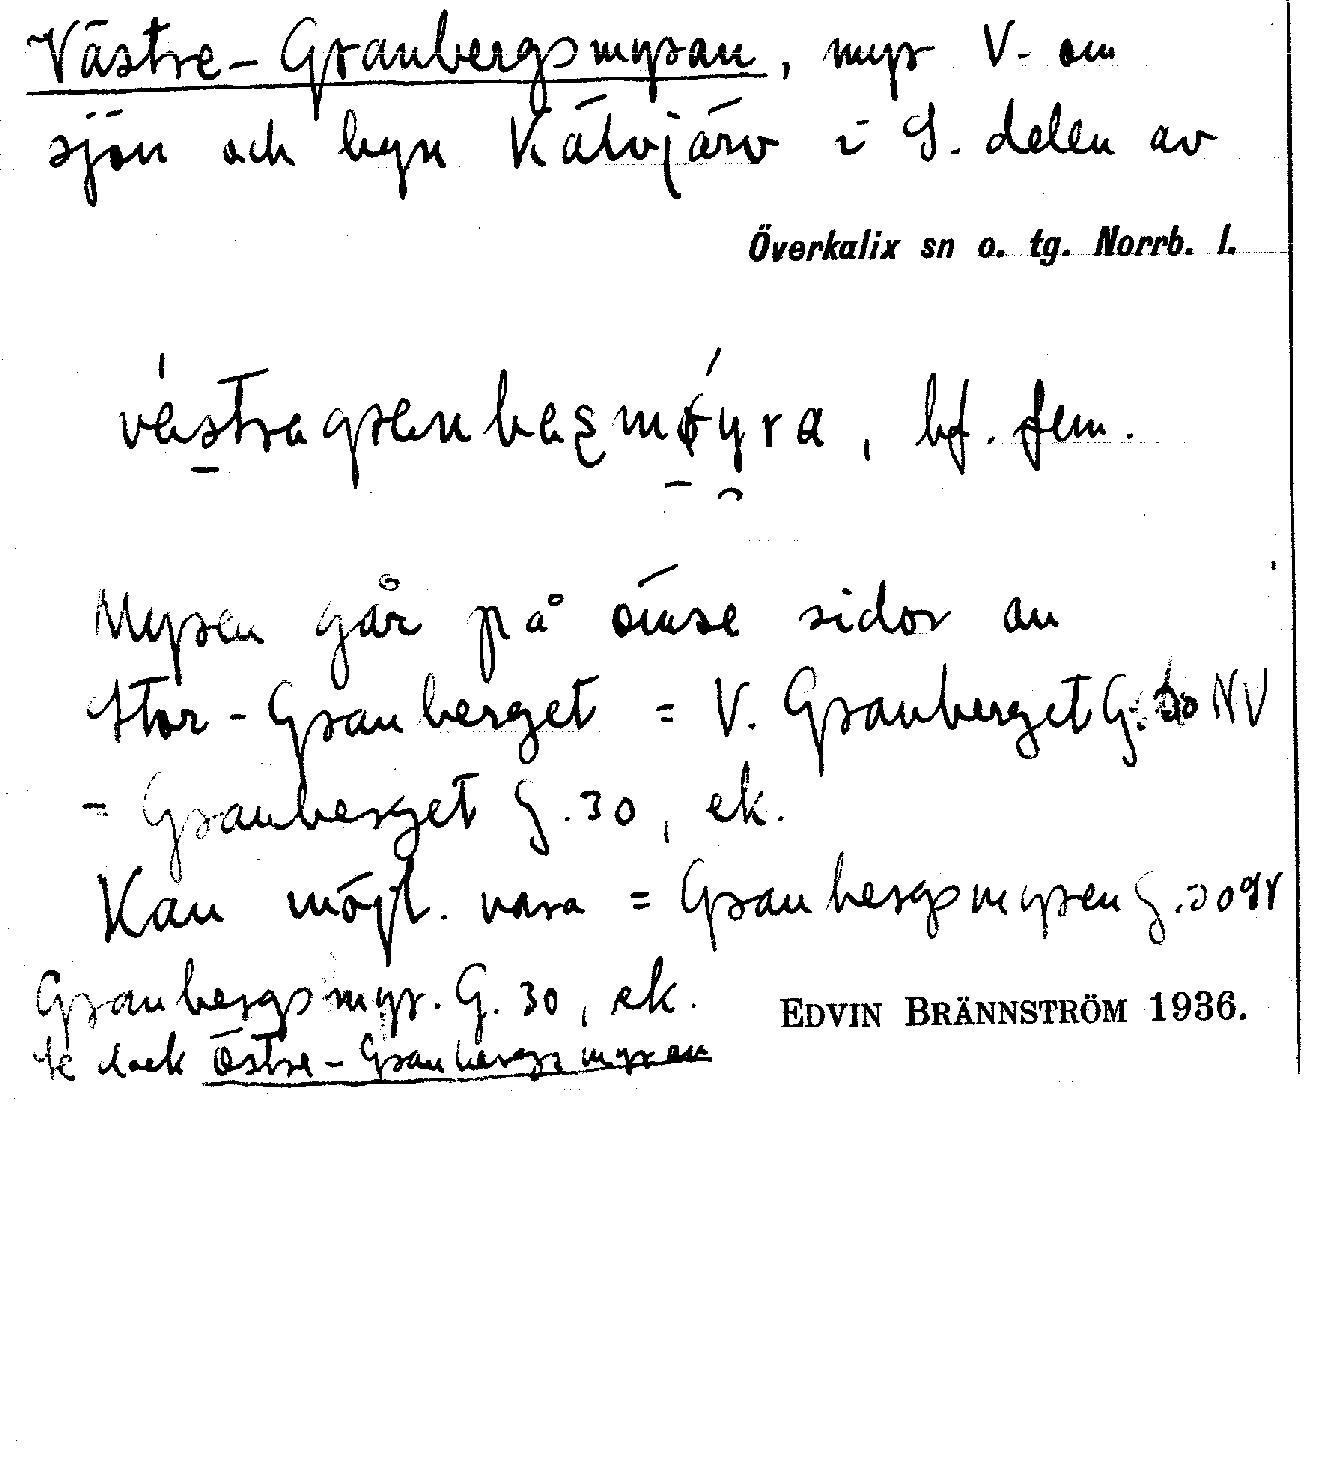 Västre-Granbergsmyran, myr V. om
sjön och byn Kälvjärv i S. delen av
Överkalix sn o. tg. Norrb. l.
bf. fem.
Myren går på ömse sidor au
Stor-Granberget = V. Granberget G. 30 NV
= Granberget G. 30, ek.
Kan möjl. vara = Granbergsmyren G. 30
Granbergsmyr. G. 30, ek.
EDVIN BRÄNNSTRÖM 1936.
Se dock Östre-Granbergsmyren